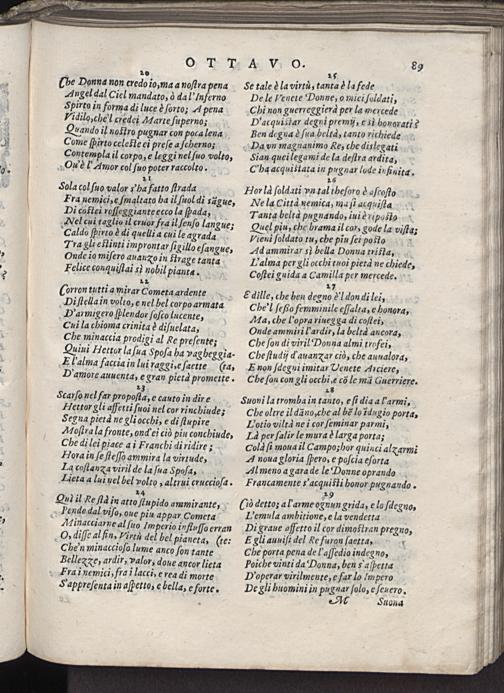 OTTAVO. 89
20
Che Donna non credo io, ma a nostra pena
Angel dal Ciel mandato, ò dal'Inferno
Spirto in forma di luce è sorto; A pena
Vidilo, che'l credei Marte superno;
Quando il nostro pugnar con poca lena
Come spirto celeste ei prese a scherno;
Contempla il corpo, e leggi nel suo volto,
Qu'è l'Amor col suo poter raccolto.
21
Sola col suo valor s'ha fatto strada
Fra nemici, e smaltato ha il suol di sāgue,
Di costei rosseggiante ecco la spada,
Nel cui taglio il cruor fra il senso langue;
Caldo spirto è di quelli a cui le agrada
Tra gli estinti improntar sigillo esangue,
Onde io misero auanzo in strage tanta
Felice conquistai sì nobil pianta.
22
Corron tutti a mirar Cometa ardente
Di stella in volto, e nel bel corpo armata
D'armigero splendor fosco lucente,
Cui la chioma crinita è disuelata,
Che minaccia prodigi al Re presente;
Quini Hettor la sua Sposa ha vagheggia-
E l'alma faccia in lui raggi, e saette (ta,
D'amore auuenta, e gran pietà promette.
23
Scarso nel far proposta, e cauto in dire
Hettor gli affetti suoi nel cor rinchiude;
Segna pietà ne gli occhi, e di stupire
Mostra la fronte, ond'ei ciò piu conchiude,
Che di lei piace a i Franchi di ridire;
Hora in se stesso ammira la virtude,
La costanza viril de la sua Sposa,
Lieta a lui nel bel volto, altrui crucciosa.
24
Quì il Re stà in atto stupido ammirante,
Pende dal viso, oue piu appar Cometa
Minacciarne al suo Imperio influsso erran
O, disse al fin, Virtù del bel pianeta, (te:
Che'n minaccioso lume anco son tante
Bellezze, ardir, valor, doue ancor lieta
Fra i nemici, fra i lacci, e rea di morte
S'appresenta in aspetto, e bella, e forte.
25
Se tale è la virtù, tanta è la fede
De le Venete Donne, o miei soldati,
Chi non guerreggierà per la mercede
D'acquistar degni premij, e sì honorati?
Ben degna è sua beltà, tanto richiede
Da vn magnanimo Re, che dislegati
Sian quei legami de la destra ardita,
C'ha acquistata in pugnar lode infinita.
26
Hor là soldati vn tal thesoro è ascosto
Ne la Città nemica, ma si acquista
Tanta beltà pugnando, iui è riposto
Quel piu, che brama il cor, gode la vista;
Vieni soldato tu, che piu sei posto
Ad ammirar sì bella Donna trista,
L'alma per gli occhi tuoi pietà ne chiede,
Costei guida a Camilla per mercede.
27
E dille, che ben degno è'l don di lei,
Che'l sesso femminile essalta, e honora,
Ma, che l'opra riuegga di costei,
Onde ammiri l'ardir, la beltà ancora,
Che son di viril Donna almi trofei,
Che studij d'auanzar ciò, che auualora,
E non sdegni imitar Venete Arciere,
Che son con gli occhi, e cō le mā Guerriere.
28
Suoni la tromba in tanto, e si dia a l'armi,
Che oltre il dāno, che al bē lo indugio porta,
L'otio viltà ne i cor seminar parmi,
Là per salir le mura è larga porta;
Colà si moua il Campo; hor quinci alzarmi
A noua gloria spero, e poscia esorta
Al meno a gara de le Donne oprando
Francamente s'acquisti honor pugnando.
29
Ciò detto; a l'arme ognun grida, e lo sdegno,
L'emula ambitione, e la vendetta
Di graue affetto il cor dimostran pregno,
E gli auuisi del Re furon saetta,
Che porta pena de l'assedio indegno,
Poiche vinti da Donna, ben s'aspetta
D'operar virilmente, e far lo Impero
De gli huomini in pugnar solo, e seuero.
M Suona